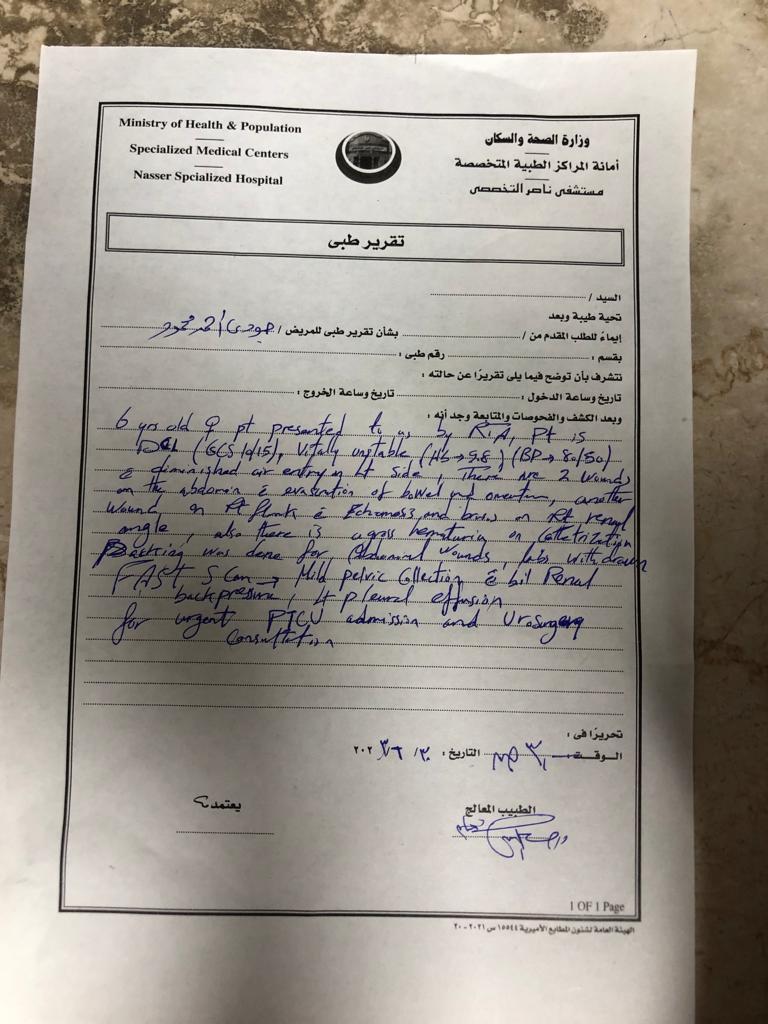 Ministry of Health & Population
Specialized Medical Centers
Nasser Spcialized Hospital
وزارة الصحة والسكان
أمانة المراكز الطبية المتخصصة
مستشفى ناصر التخصصى
تقرير طبى
السيد /
تحية طيبة وبعد
إيماءً للطلب المقدم من / بشأن تقرير طبى للمريض / أحمد محمود
بقسم : رقم طبى :
نتشرف بأن نوضح فيما يلى تقريرًا عن حالته :
تاريخ وساعة الدخول : تاريخ وساعة الخروج :
وبعد الكشف والفحوصات والمتابعة وجد أنه :
6 yrs old ♀ pt presented to us by RTA, pt is
DCL (GCS 10/15), Vitally unstable (Hb → 9.8) (BP → 80/50)
c̄ diminished air entry on Lt side, There are 2 wounds
on the abdomen c̄ of bowel and omentum, another
wound on Rt flank c̄ and on Rt renal
angle, also there is gross hematuria on
was done for abdominal wounds, labs withdrawn
FAST Scan → Mild pelvic Collection c̄ bil Renal
backpressure, Lt pleural effusion
for urgent PICU admission and Urosurgery
Consultation
تحريرًا فى :
الوقت التاريخ :
يعتمد،
الطبيب المعالج
1 OF 1 Page
الهيئة العامة لشئون المطابع الأميرية ١٥٥٤٤ س ٢٠٢١ - ٢٠